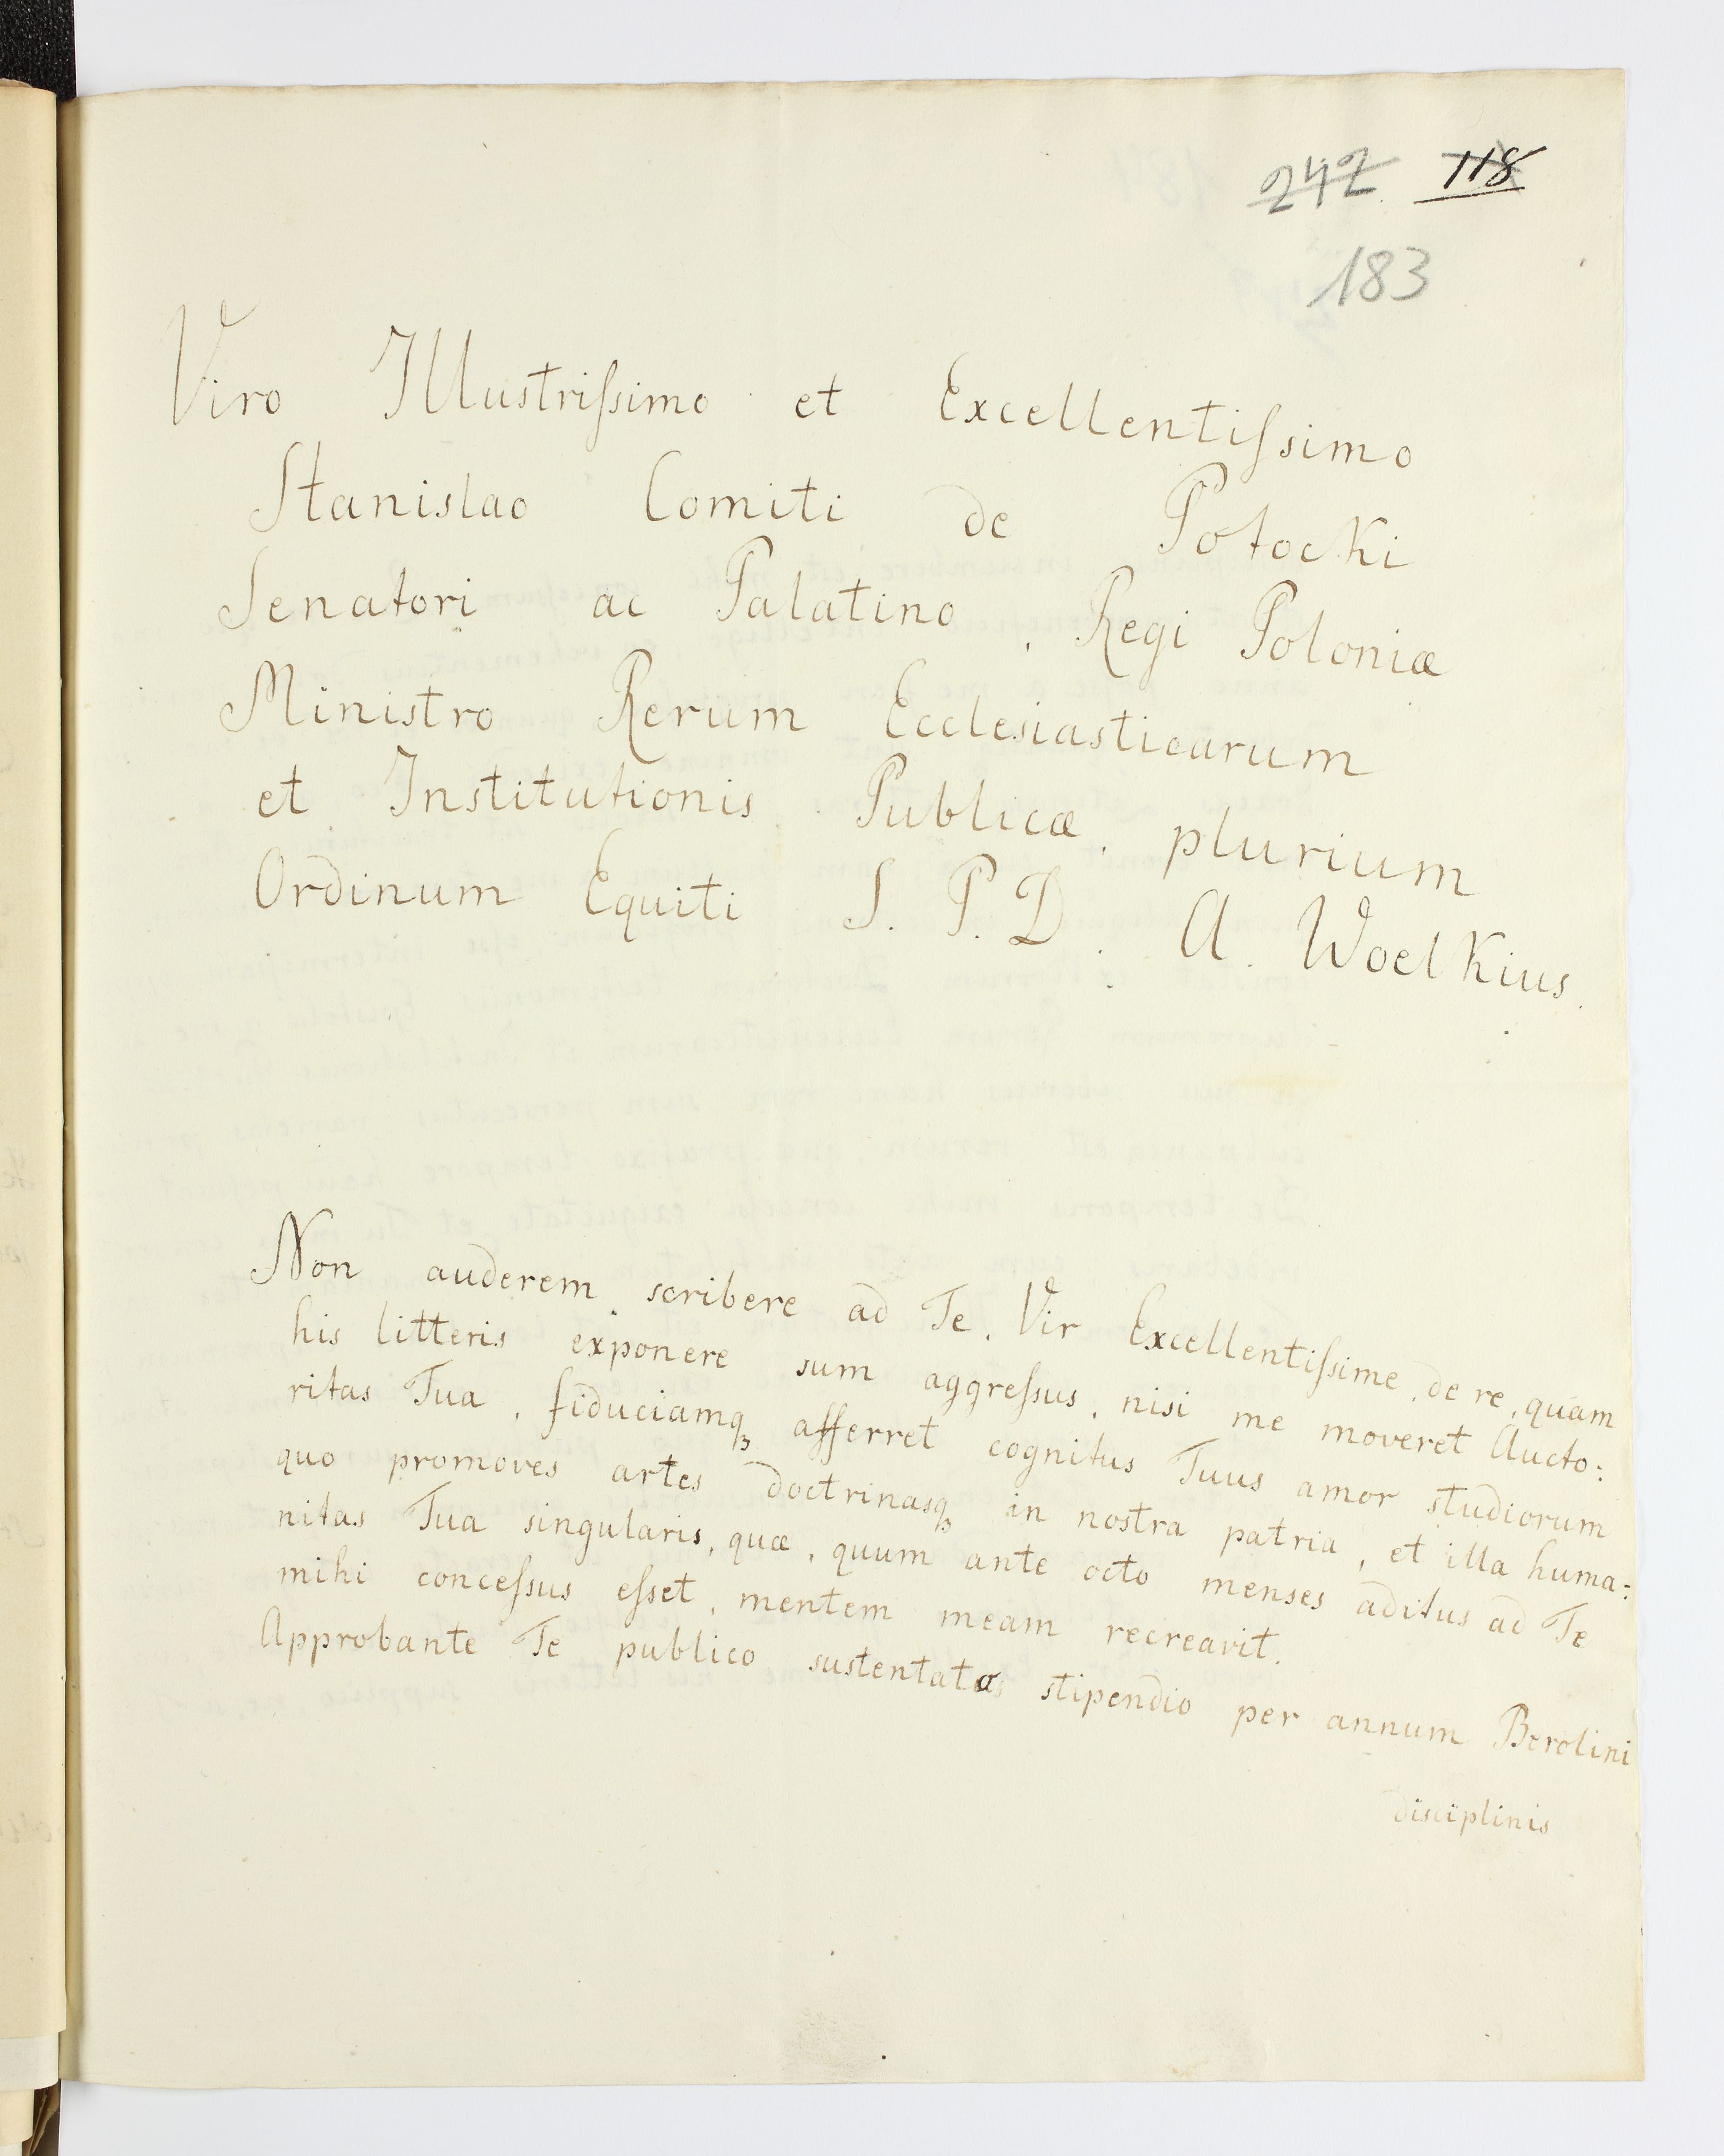 247. 118
183
Viro Illustriſsimo et Excellentiſsimo
Stanislao Comiti de Potocki
Senatori ac Palatino, Regi Poloniæ
Ministro Rerum Ecclesiasticarum
et Institutionis Publicæ, plurium
Ordinum Equiti S. P. D. A. Woelkius.
Non auderem scribere ad Te, Vir Excellentiſsime, de re, quam
his litteris exponere sum aggreſsus, nisi me moveret Aucto:
ritas Tua, fiduciamqꝫ afferret cognitus Tuus amor studiorum
quo promoves artes doctrinasqꝫ in nostra patria, et illa huma:
nitas Tua singularis, quæ, quum ante octo menses aditus ad Te
mihi conceſsus eſset, mentem meam recreavit.
Approbante Te publico sustentatus stipendio per annum Berolini
disciplinis